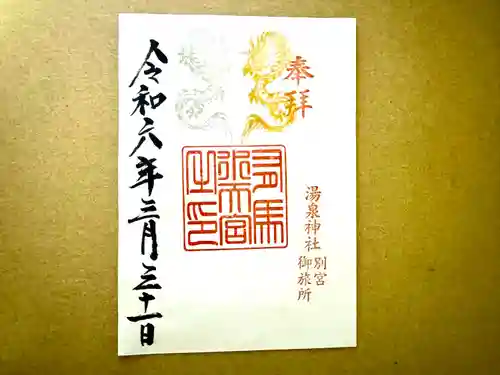 奉拝
湯泉神社
別宮
御旅所
有馬
天神宮
之印
令和六年三月三十一日